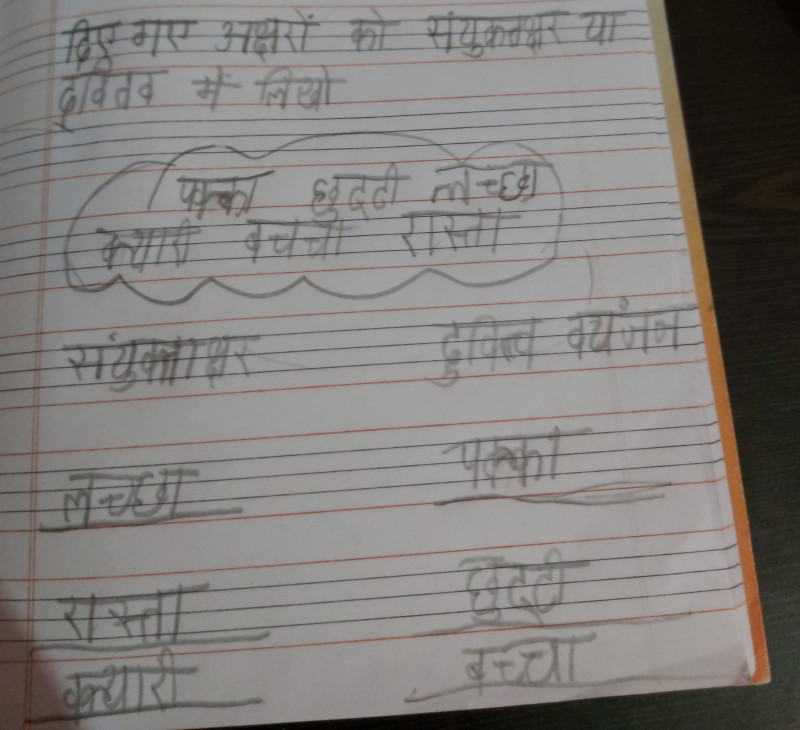 दिए गए अक्षरों को संयुक्ताक्षर या
द्वितव में लिखो
पक्का छुट्टी लच्छा
क्यारी बच्चा रास्ता
संयुक्ताक्षर दुवित्व वयंजन
लच्छा पक्का
रास्ता छुट्टी
क्यारी बच्चा